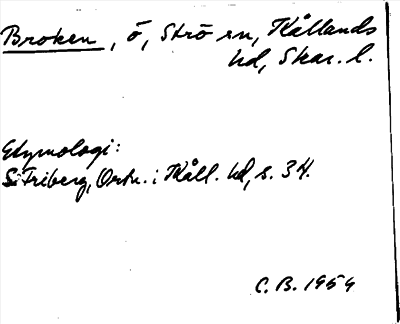 Broken, ö, Strö sn, Kållands
hd, Skar. l.
Etymologi:
S. Friberg, Ortn. i Kåll. hd, s. 34.
C. B. 1959